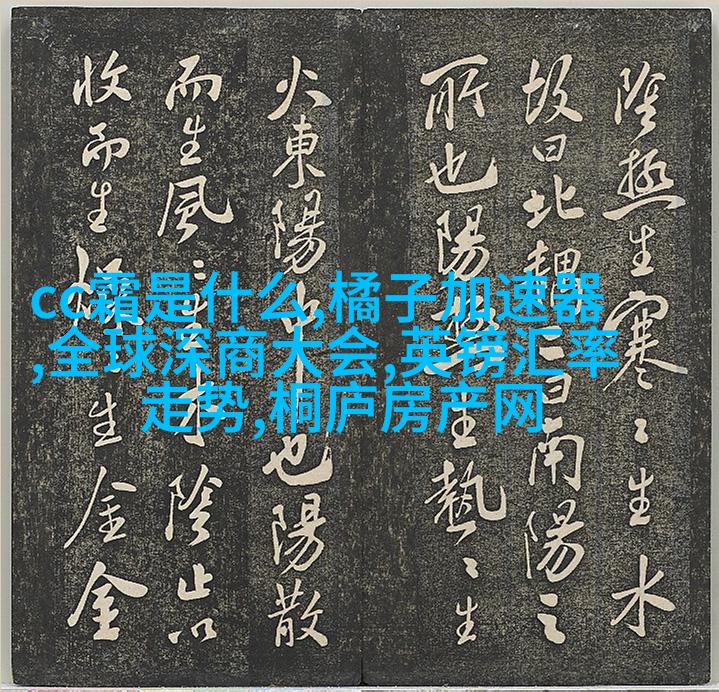 cc霜是什么,橘子加速器
,全球深商大会,英镑汇率
走势,桐庐房产网
陰極生寒〻生水
故曰北曰南陽之
所也陽極生熱〻生
火東陽也陽散
而生風〻生木陰止以
收而生燥生金金